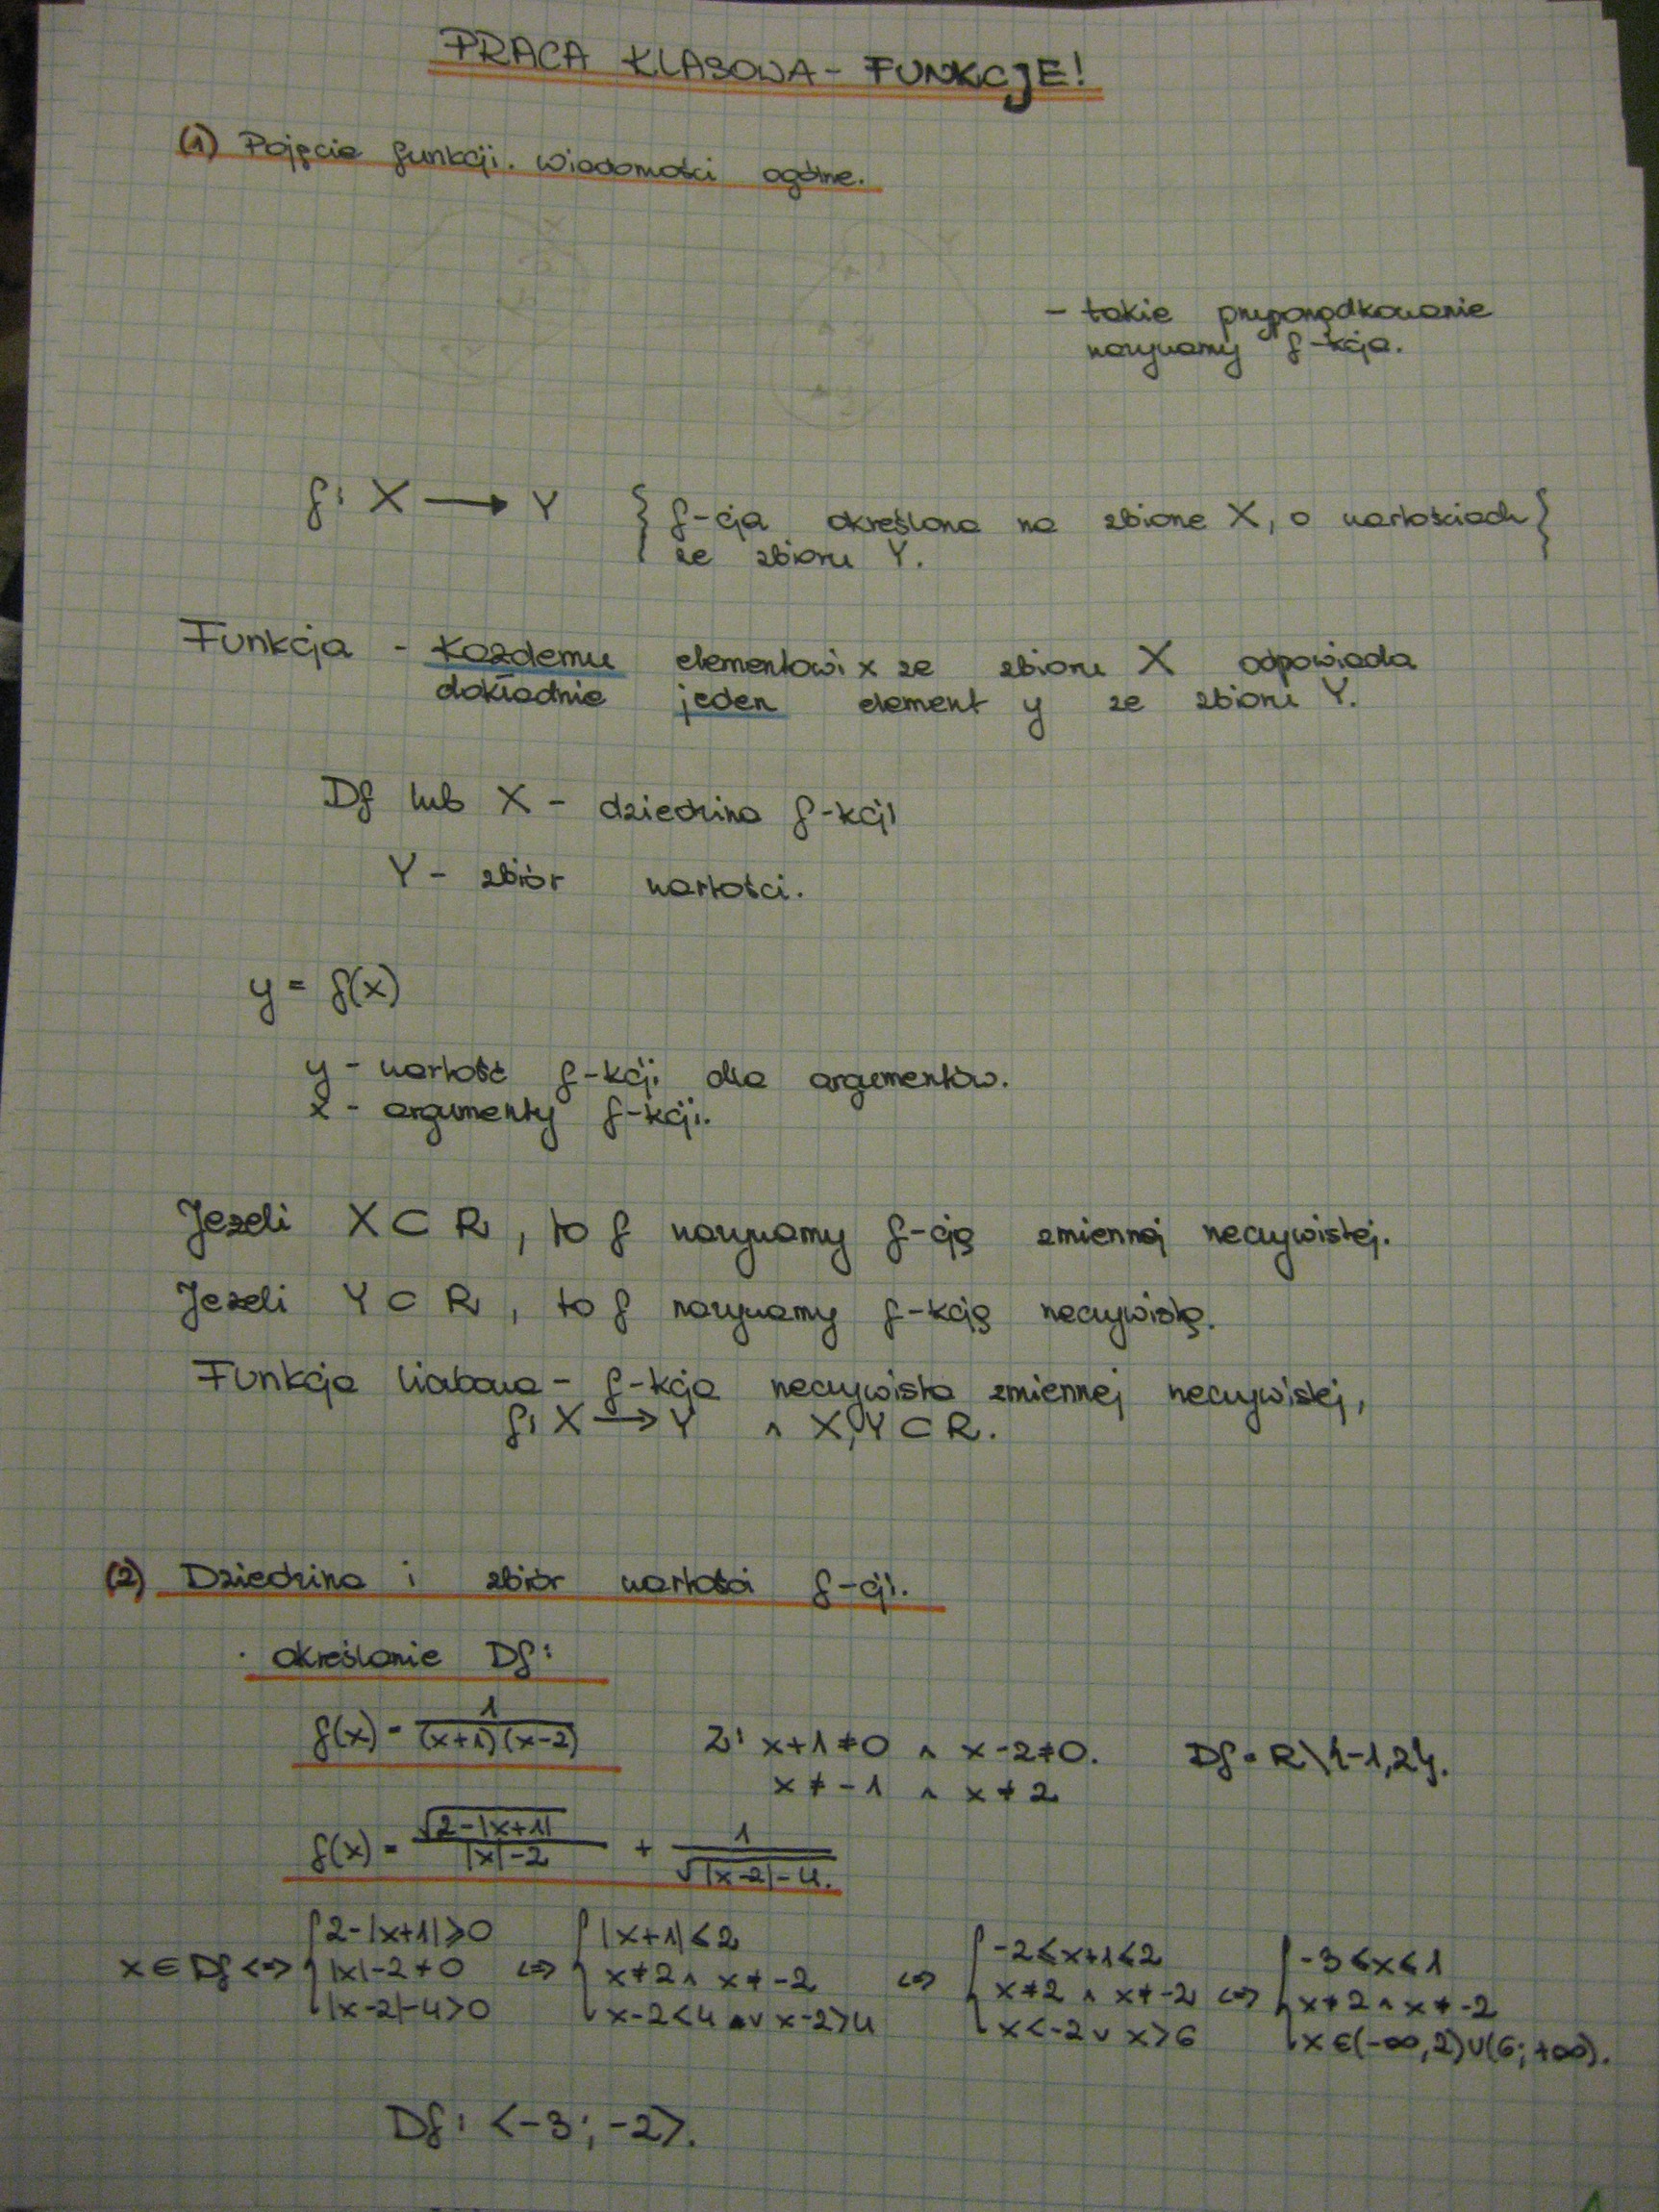 PRACA KLASOWA - FUNKCJE!
(1) Pojęcie funkcji. Wiadomości ogólne.
- takie przyporządkowanie
nazywamy f-kcja.
f: X → Y { f-cja określona na zbiorze X, o wartościach }
ze zbioru Y.
Funkcja - każdemu elementowi x ze zbioru X odpowiada
dokładnie jeden element y ze zbioru Y.
Df lub X - dziedzina f-kcji
Y - zbiór wartości.
y = f(x)
y - wartość f-kcji dla argumentów.
x - argumenty f-kcji.
Jeżeli X ⊂ R, to f nazywamy f-cją zmiennej rzeczywistej.
Jeżeli Y ⊂ R, to f nazywamy f-kcją rzeczywistą.
Funkcja liczbowa - f-kcja rzeczywista zmiennej rzeczywistej,
f: X → Y ∧ X,Y ⊂ R.
(2) Dziedzina i zbiór wartości f-cji.
· określanie Df:
f(x) = 1/((x+1)(x-2)) Z: x+1≠0 ∧ x-2≠0. Df = R\{-1,2}.
x≠-1 ∧ x≠2
f(x) = √(2-|x+1|)/(|x|-2) + 1/√(|x-2|-4).
x ∈ Df <=> { 2-|x+1|≥0 <=> { |x+1|≤2 <=> { -2≤x+1≤2 <=> { -3≤x≤1
|x|-2≠0 x≠2 ∧ x≠-2 x≠2 ∧ x≠-2 x≠2 ∧ x≠-2
|x-2|-4>0 x-2<4 ∨ x-2>4 x<-2 ∨ x>6 x∈(-∞,2)∪(6;+∞).
Df: <-3;-2).